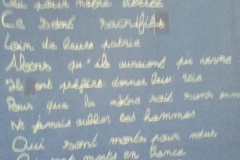 pour notre liberté
Ce sont sacrifiés
Loin de leurs patrie
Alors qu'ils auraient pu vivre
Ils ont préférés donner leur vie
Pour que la nôtre soit
Ne jamais oublier ces hommes
Qui sont morts pour nous
morts en France